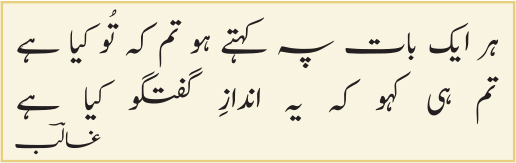 ہر ایک بات پہ کہتے ہو تم کہ تُو کیا ہے
تم ہی کہو کہ یہ اندازِ گفتگو کیا ہے
غالبؔ